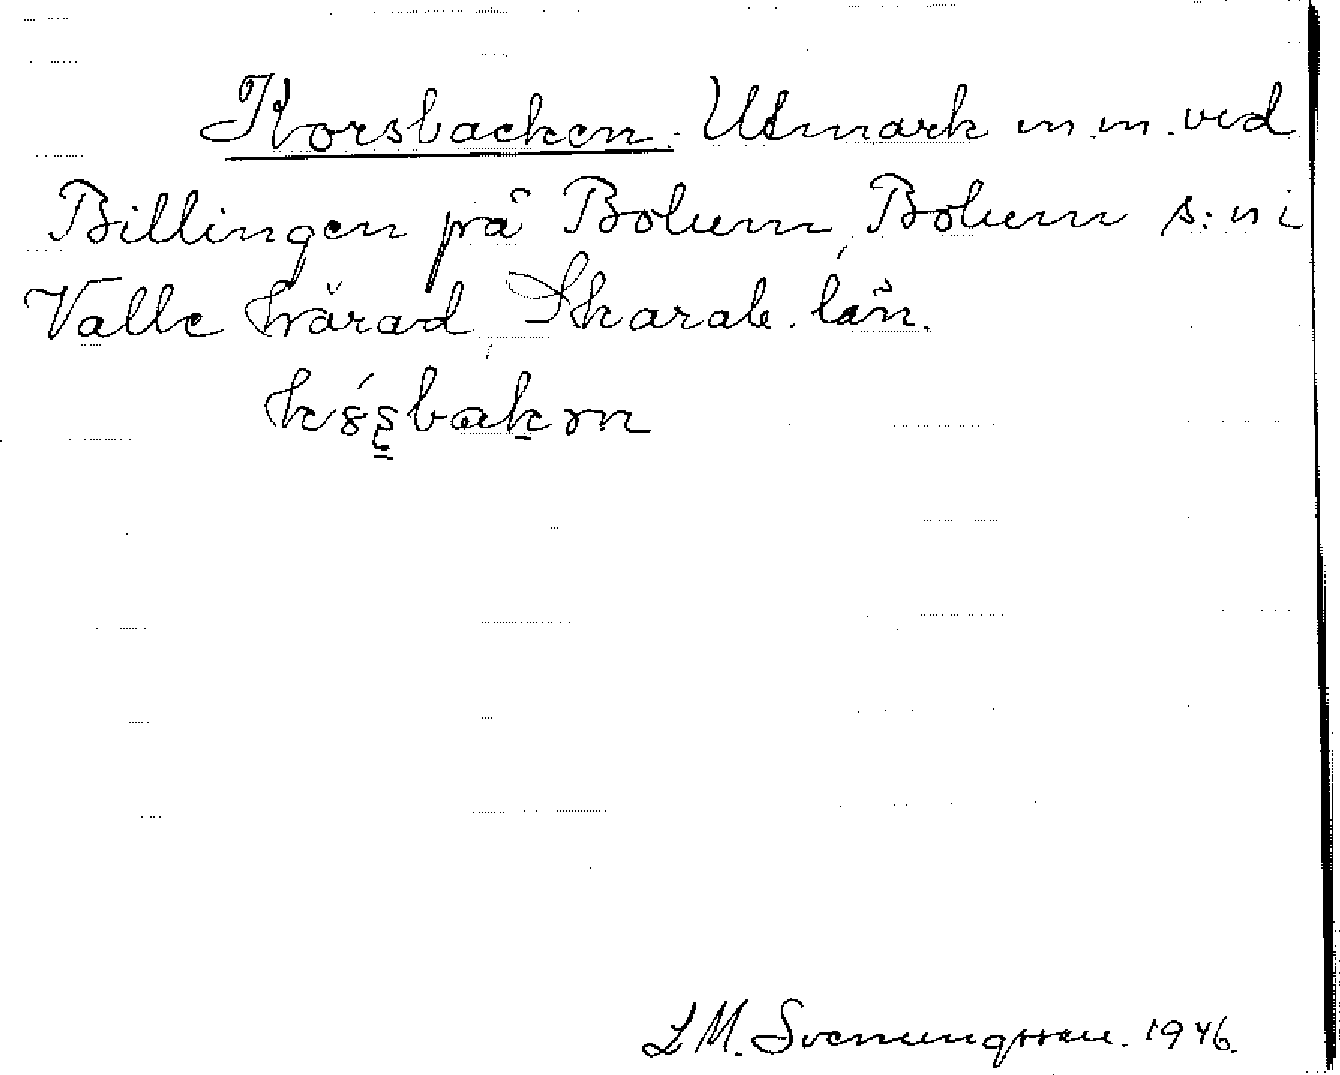 Korsbacken. Utmark m.m. ved
Billingen på Bolum, Bolum s:n i
Valle härad, Skarab. län.
L M. Svenungsson. 1946.